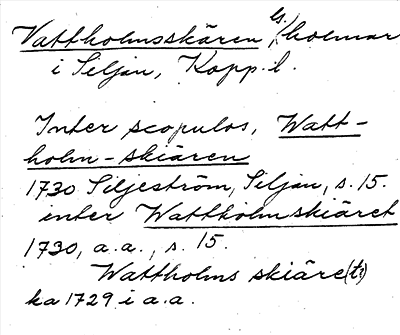 Vattholmsskären, holmar
i Siljan, Kopp. l.
Inter scopulos, Watt-
holm-skiären
1730 Siljeström, Siljan, s. 15.
inter Wattholmskiäret
1730, a.a., s. 15.
Wattholms skiäre(t?)
ka 1729 i a.a.